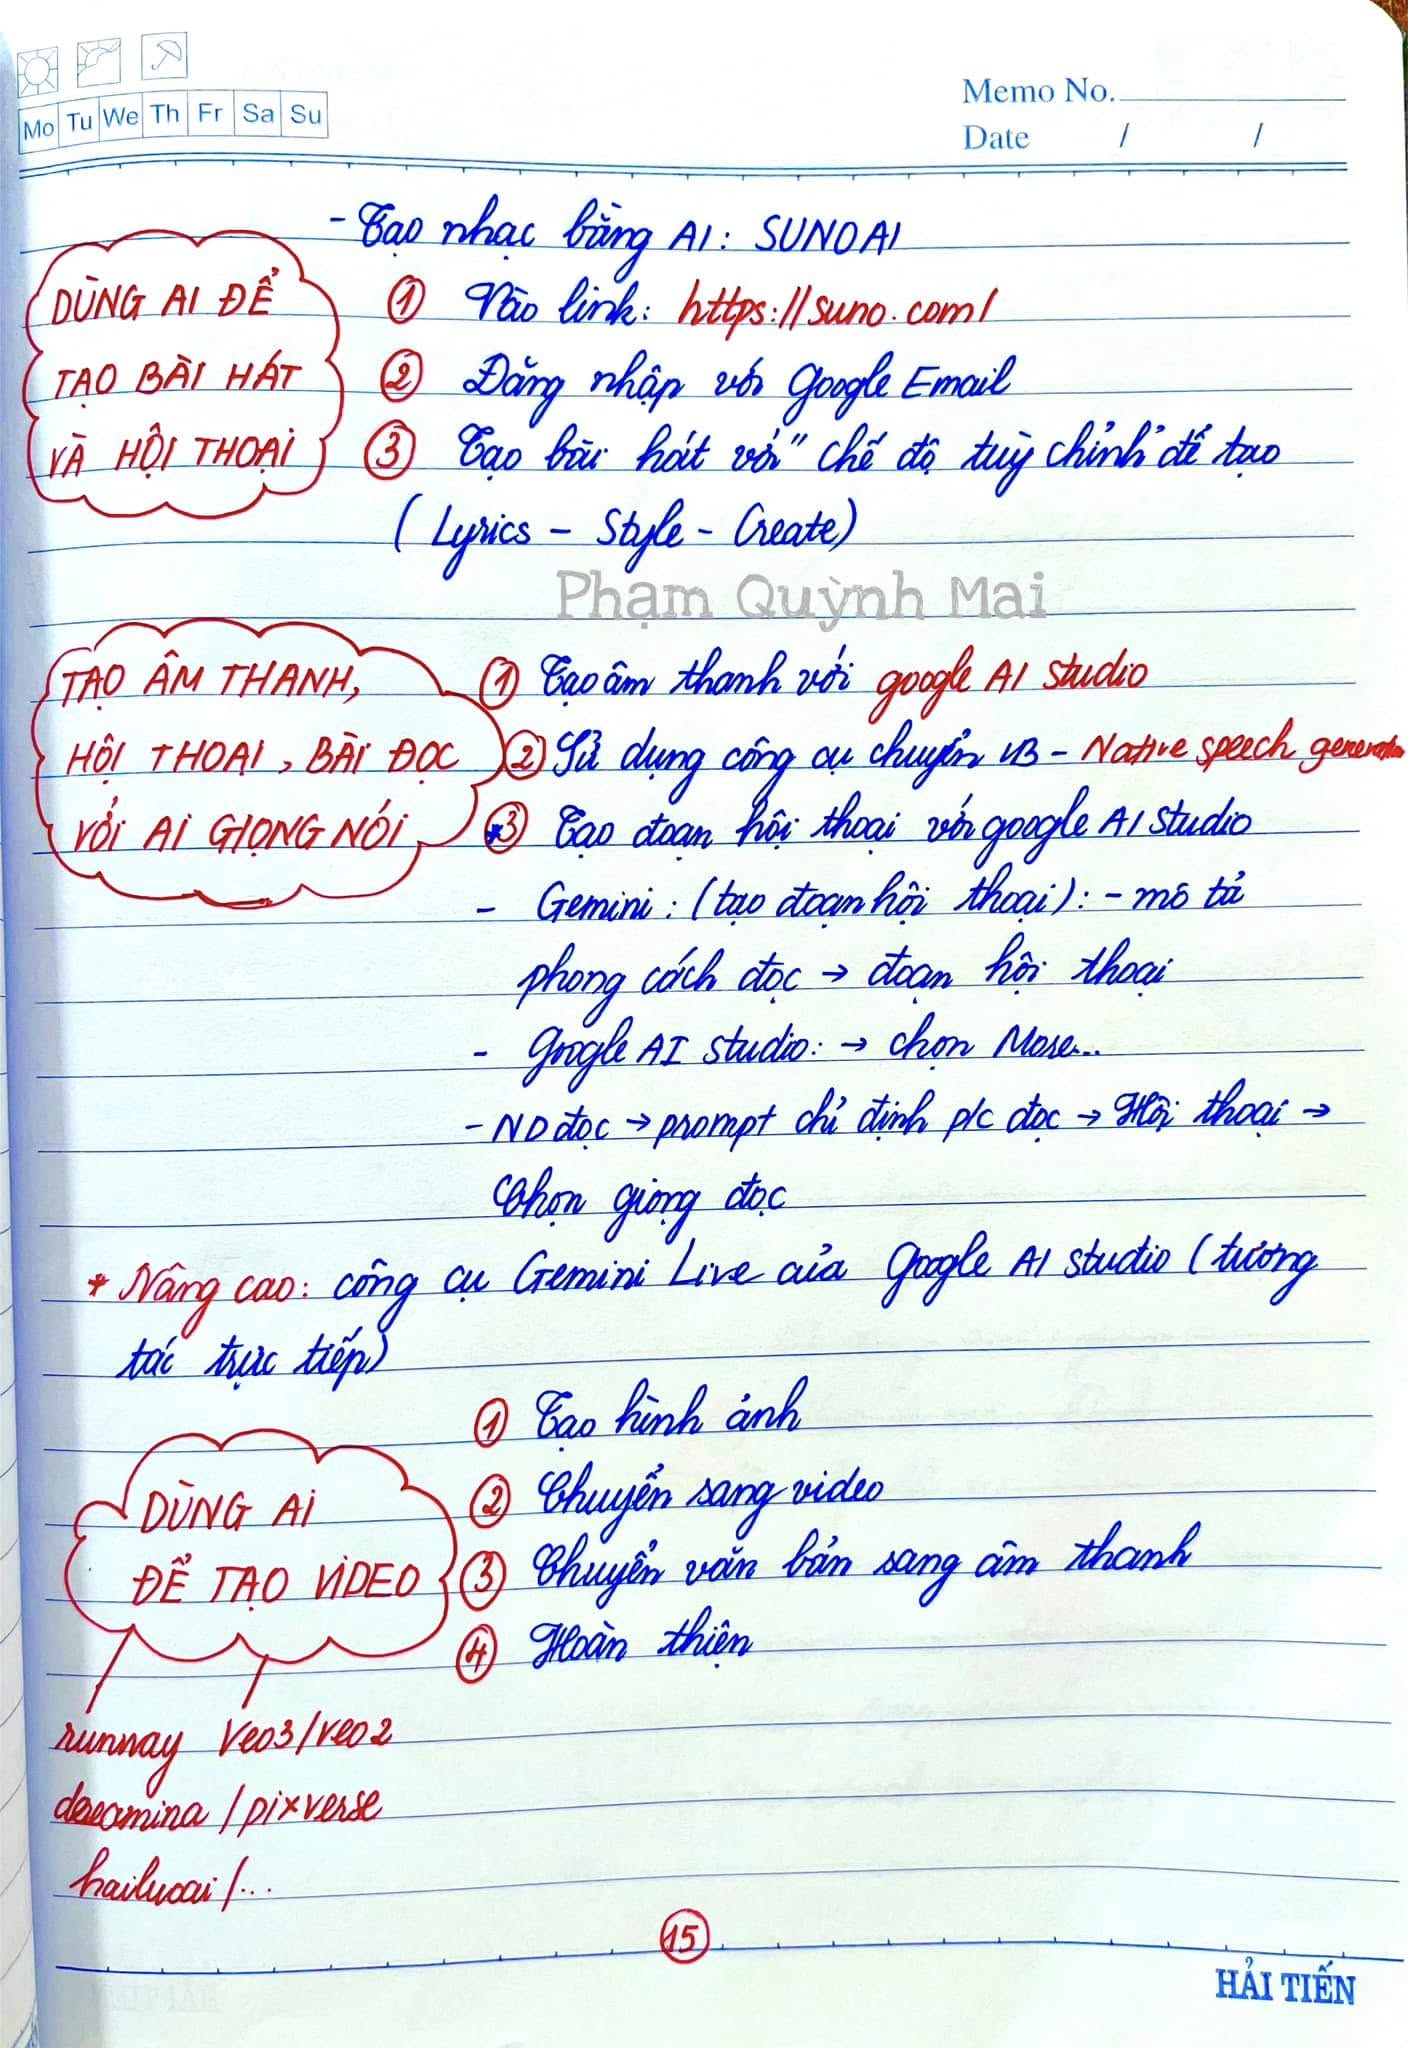 Mo Tu We Th Fr Sa Su
Memo No.
Date / /
- Tạo nhạc bằng AI: SUNOAI
DÙNG AI ĐỂ
TẠO BÀI HÁT
VÀ HỘI THOẠI
① Vào link: https://suno.com/
② Đăng nhập với Google Email
③ Tạo bài hát với "chế độ tuỳ chỉnh" để tạo
(Lyrics - Style - Create)
Phạm Quỳnh Mai
TẠO ÂM THANH,
HỘI THOẠI, BÀI ĐỌC
VỚI AI GIỌNG NÓI
① Tạo âm thanh với google AI studio
② Sử dụng công cụ chuyển VB - Native speech generation
*③ Tạo đoạn hội thoại với google AI Studio
- Gemini: (tạo đoạn hội thoại): - mô tả
phong cách đọc → đoạn hội thoại
- Google AI studio: → chọn More...
- ND đọc → prompt chỉ định p/c đọc → Hội thoại →
Chọn giọng đọc
* Nâng cao: công cụ Gemini Live của Google AI studio (tương
tác trực tiếp)
DÙNG AI
ĐỂ TẠO VIDEO
① Tạo hình ảnh
② Chuyển sang video
③ Chuyển văn bản sang âm thanh
④ Hoàn thiện
runway Veo3/veo2
/pixverse
hailuoai/...
15
HẢI TIẾN